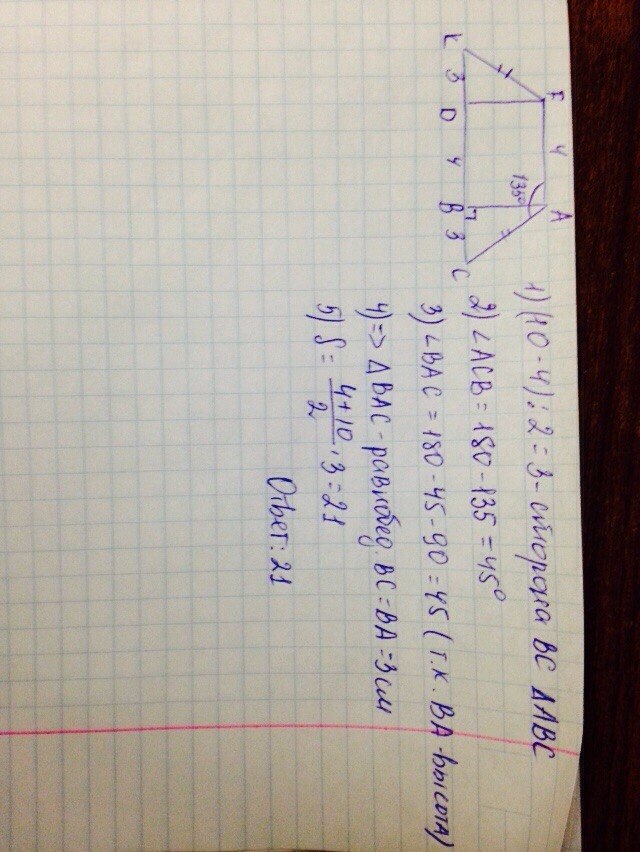 K 3 D 4 B 3 C
F 4 A
135°
1) (10-4):2=3-сторона BC ΔABC
2) ∠ACB=180-135=45°
3) ∠BAC=180-45-90=45 (т.к. BA-высота)
4) => ΔBAC-равнобед. BC=BA=3см
5) S= 4+10/2 ·3=21
Ответ: 21